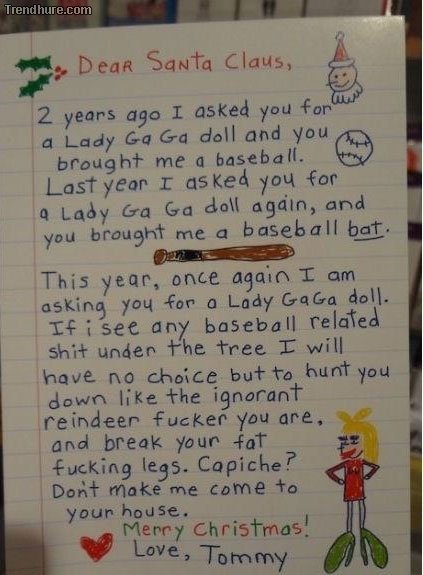 Trendhure.com
Dear Santa Claus,
2 years ago I asked you for
a Lady Ga Ga doll and you
brought me a baseball.
Last year I asked you for
a Lady Ga Ga doll again, and
you brought me a baseball bat.
This year, once again I am
asking you for a Lady GaGa doll.
If i see any baseball related
shit under the tree I will
have no choice but to hunt you
down like the ignorant
reindeer fucker you are,
and break your fat
fucking legs. Capiche?
Don't make me come to
your house.
Merry Christmas!
Love, Tommy